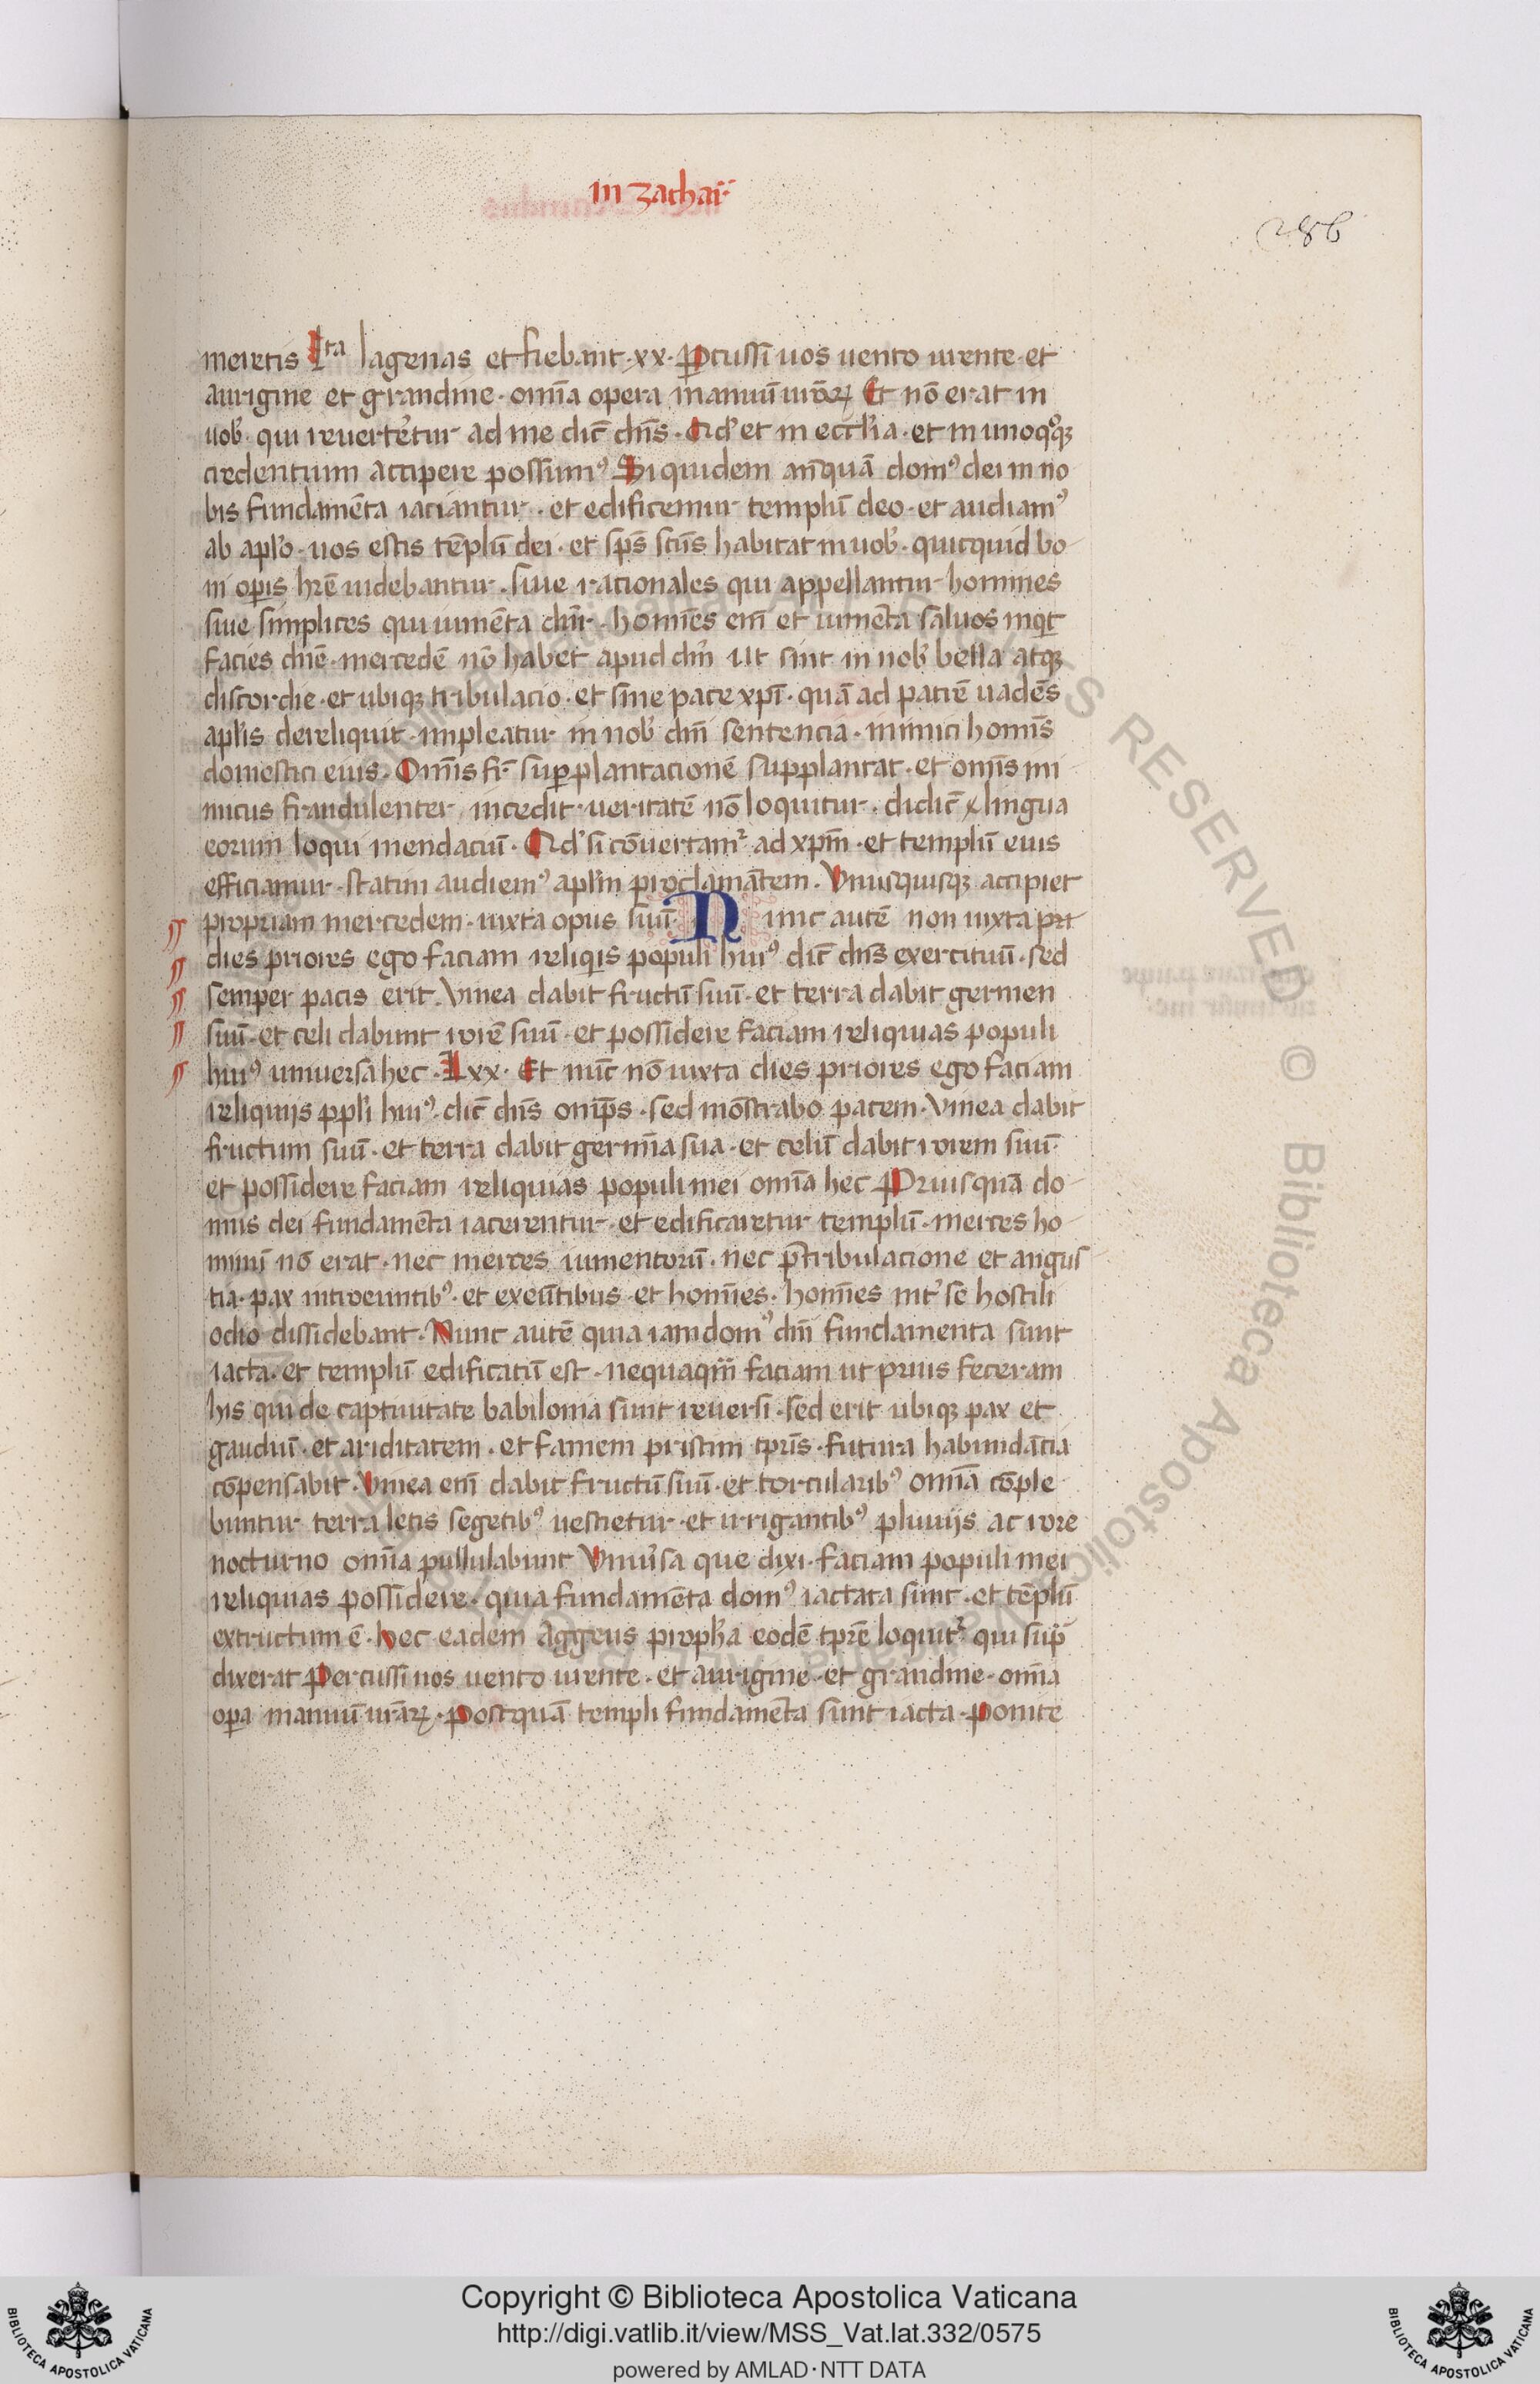 in zachar̅
286
meretis lta lagenas et fiebant · xx · ꝑcussi uos uento urente · et
aurigine et grandine · om̅ia opera manuu̅ ur̅oꝝ Et no̅ erat in
uob̅ · qui reuertet̉ur ad me dic̅ dn̅s · Qd̕ et in eccl̅ia · et in unoqᵒqꝫ
credentium accipere possumꝰ Siquidem an̅qua̅ domꝰ dei in no
bis fundame̅ta iaciantur · et edificemur templu̅ deo · et audiamꝰ
ab apl̅o · uos estis te̅plu̅ dei · et sp̅s sc̅us habitat in uob̅ · quicquid bo
ni oꝑis hr̅e uidebantur · siue rationales qui appellantur homines
siue simplices qui iume̅ta dn̅r · homi̅es eni̅ et iume̅ta saluos inqi̅t
facies dn̅e · mercede̅ no̅ habet apud dm̅ Ut sint in nob̅ bella atqꝫ
discordie · et ubiqꝫ tribulacio · et sine pace xpi̅ · qua̅ ad patre̅ uade̅s
apl̅is dereliquit · impleatur in nob̅ dn̅i sentencia · inimici homi̅s
domestici eius · Omi̅s fr̅ suꝑplantacione̅ supplantat · et omi̅s ini
micus fraudulenter incedit · ueritate̅ no̅ loquitur · didic̅ x lingua
eorum loqui mendaciu̅ · Qd̕ si co̅uertamᷣ ad xpm̅ · et templu̅ eius
efficiamur · statim audiemꝰ apl̅m proclama̅tem · Vnusquisqꝫ accipiet
propriam mercedem · iuxta opus suu̅ · Nunc aute̅ non iuxta pri
dies priores ego faciam reliqis populi huiꝰ dic̅ dn̅s exercituu̅ · sed
semper pacis erit · Vinea dabit fructu̅ suu̅ · et terra dabit germen
suu̅ · et celi dabunt rore̅ suu̅ · et possidere faciam reliquias populi
huiꝰ uniuersa hec · Lxx · Et nu̅c no̅ iuxta dies priores ego faciam
reliquijs ppl̅i huiꝰ · dic̅ dn̅s omp̅s · sed mo̅strabo pacem · Vinea dabit
fructum suu̅ · et terra dabit germi̅a sua · et celu̅ dabit rorem suu̅ ·
et possidere faciam reliquias populi mei om̅ia hec Priusqua̅ do
mus dei fundame̅ta iacerentur · et edificaretur templu̅ · merces ho
minu̅ no̅ erat · nec merces iumentoru̅ · nec p̅ tribulacione et angus
tia · pax introeuntibꝰ · et exeu̅tibus · et homi̅es · homi̅es int̉ se hostili
odio dissidebant · Nunc aute̅ quia iam domꝰ dn̅i fundamenta sunt
iacta · et templu̅ edificatu̅ est · nequaqm̅ faciam ut prius feceram
his qui de captiuitate babilonia sunt reuersi · sed erit ubiqꝫ pax et
gaudiu̅ · et ariditatem · et famem pristini tpr̅is · futura habunda̅cia
co̅pensabit · Vinea eni̅ dabit fructu̅ suu̅ · et torcularibꝰ om̅ia co̅ple
buntur terra letis segetibꝰ uestietur · et irrigantibꝰ pluuijs ac rore
nocturno om̅ia pullulabunt Vniu̕sa que dixi · faciam populi mei
reliquias possidere · quia fundame̅ta domꝰ iactata sunt · et te̅plu̅
extructum e̅ · hec eadem Aggeus proph̅a eode̅ tpr̅e loquitᷣ qui sup̅
dixerat Percussi uos uento urente · et aurigine · et grandine · om̅ia
oꝑa manuu̅ ur̅aꝝ · Postqua̅ templi fundame̅ta sunt iacta · Ponite
Copyright © Biblioteca Apostolica Vaticana
http://digi.vatlib.it/view/MSS_Vat.lat.332/0575
powered by AMLAD·NTT DATA